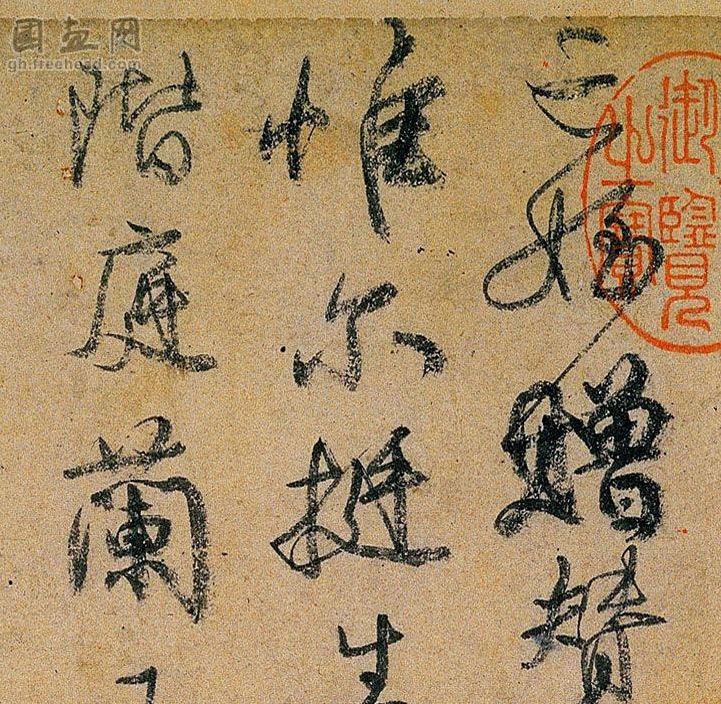 亡姪贈贊
惟尔挺生
階庭蘭
御覽之寶
国画网
gh.freehead.com